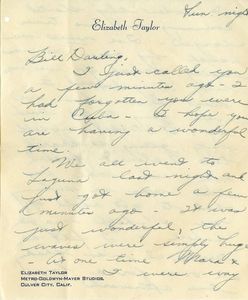 Sun. night
Elizabeth Taylor
Bill Darling,
I just called you
a few minutes ago - I
had forgotten you were
in Cuba - I hope you
are having a wonderful
time.
We all went to
Laguna last night and
just got home a few
minutes ago - It was
just wonderful, the
waves were simply huge
- At one time Mara &
I were way
ELIZABETH TAYLOR
METRO-GOLDWYN-MAYER STUDIOS,
CULVER CITY, CALIF.